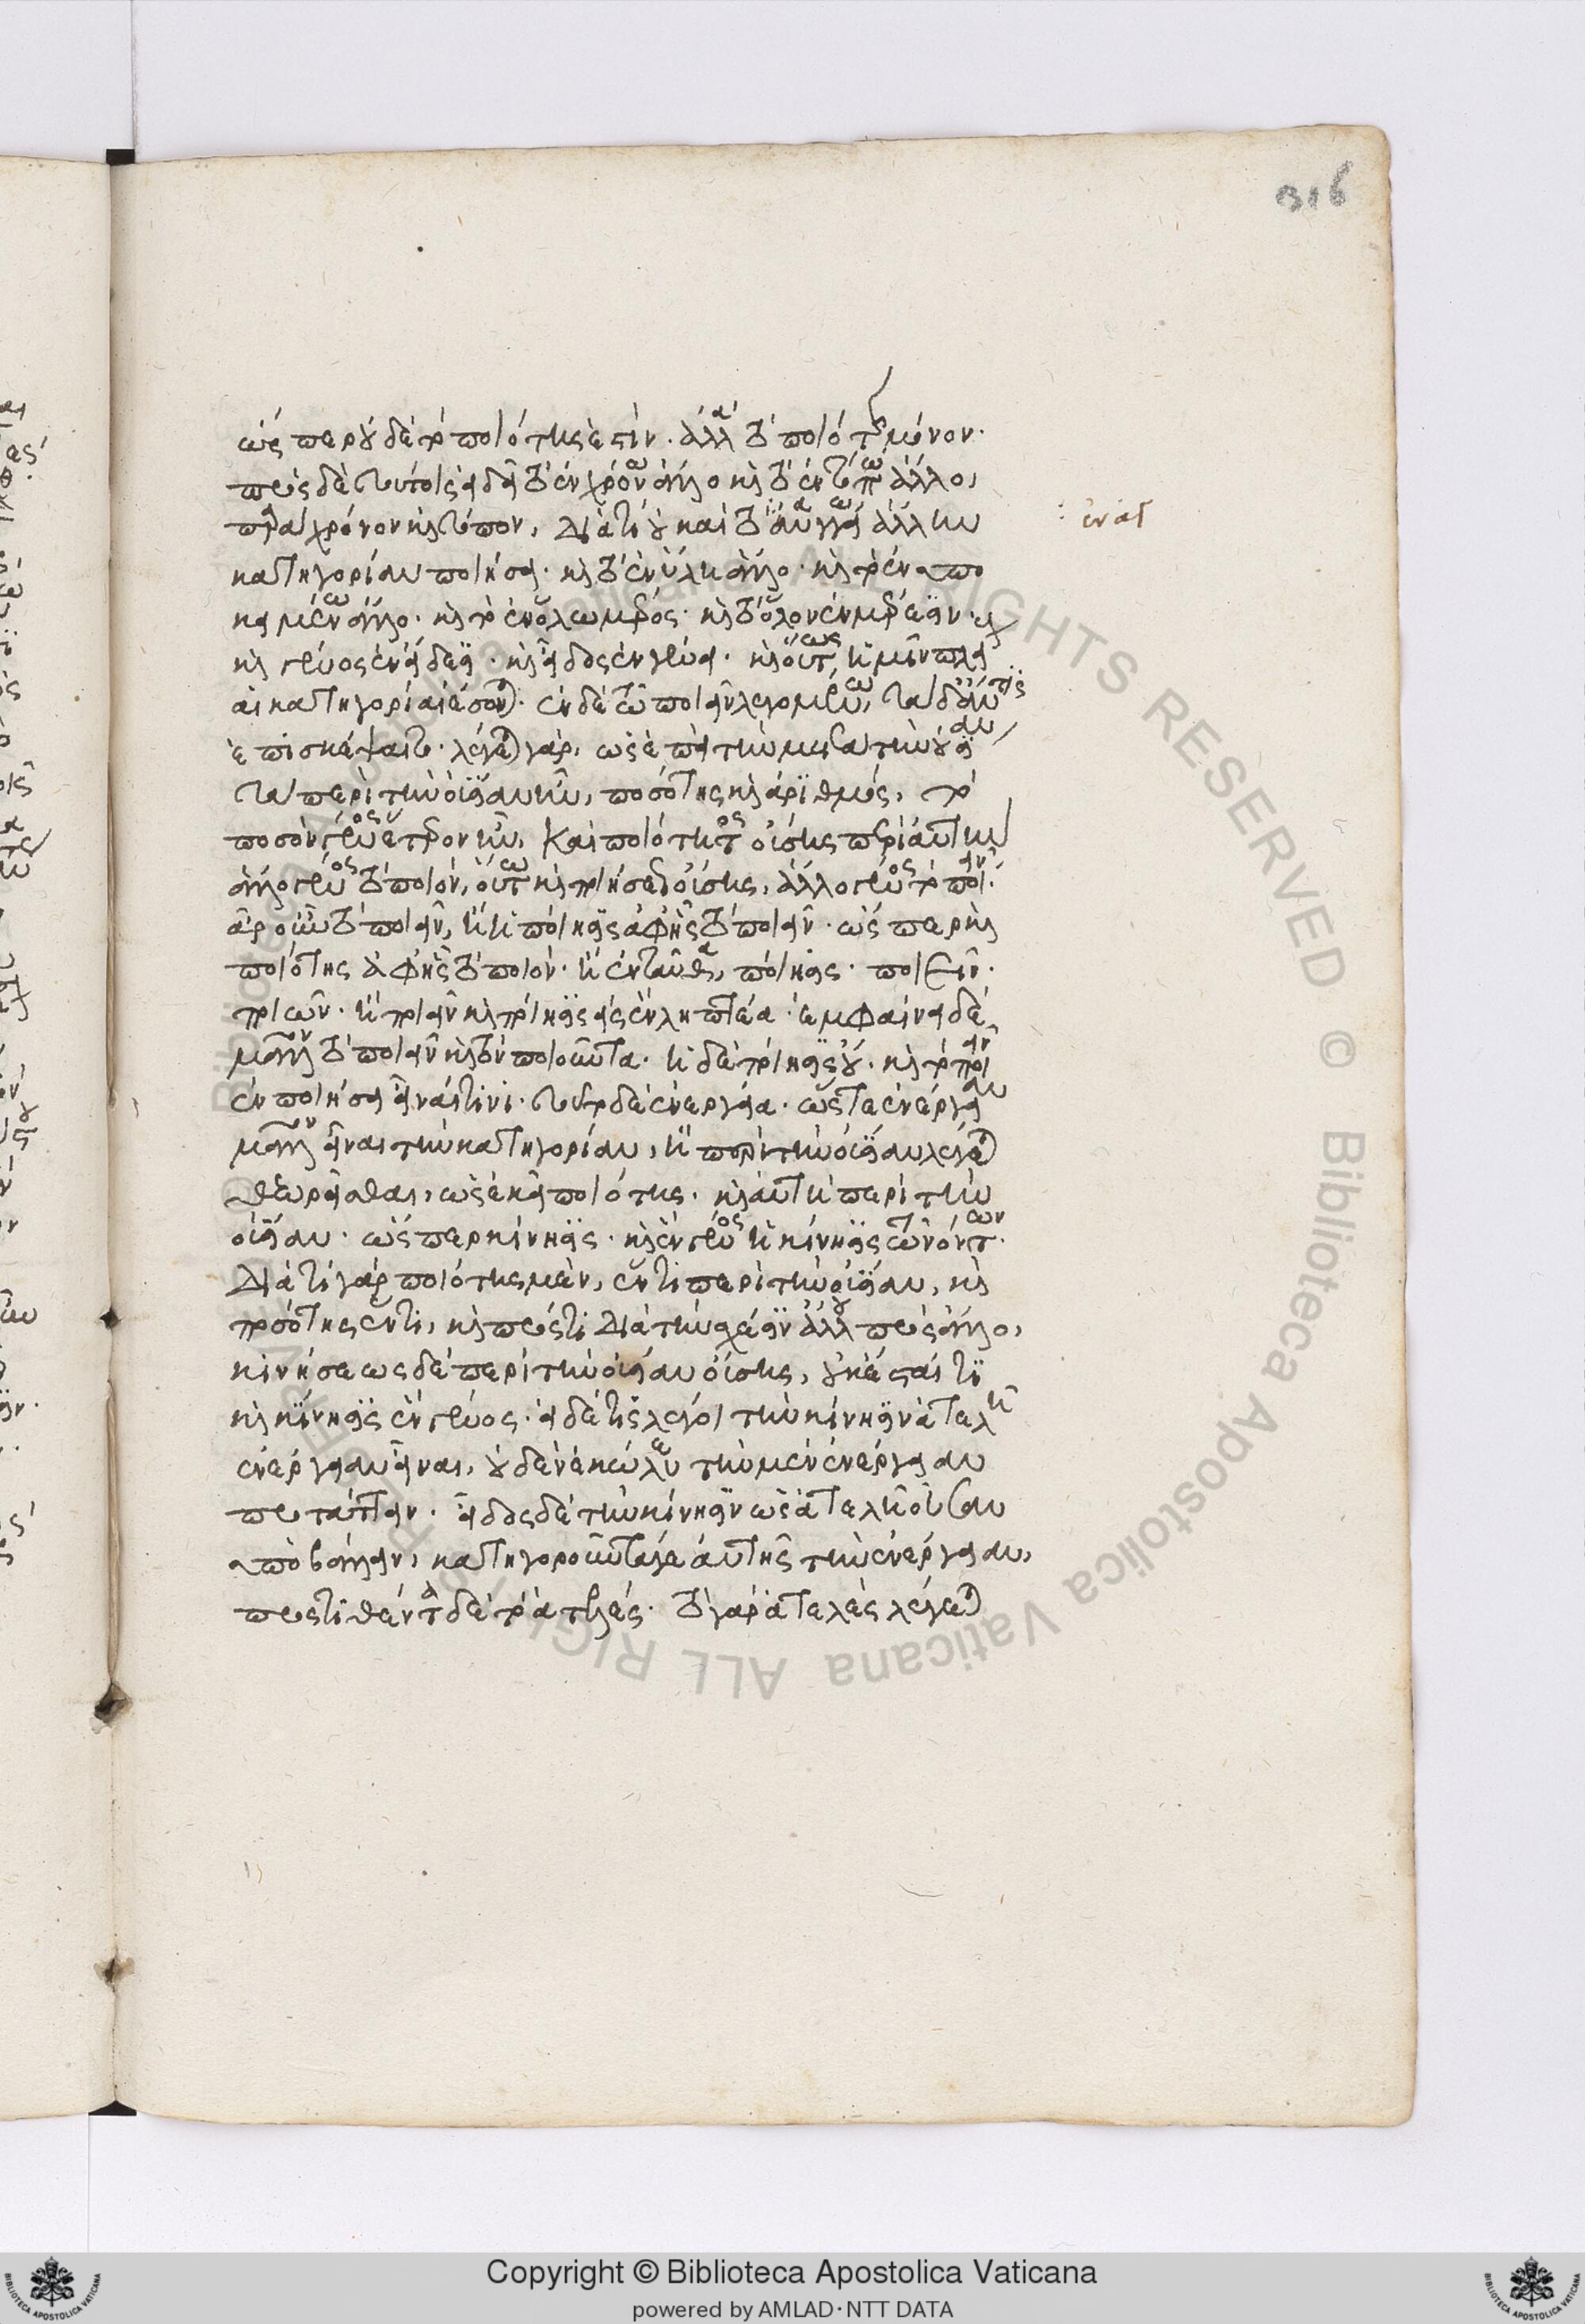 ὥσπερ οὐδὲ τὸ ποιότης ἐστίν. ἀλλὰ τὸ ποιότης μόνον.
πρὸς δὲ τούτοις εἰ δὴ τὸ ἐν χρόνῳ ἄλλο καὶ τὸ ἐν τόπῳ ἄλλο,
παρὰ χρόνον καὶ τόπον, διὰ τί οὐ καὶ τὸ ἀγγείῳ ἄλλην
κατηγορίαν ποιήσει. καὶ τὸ ἐν ὕλῃ ἄλλο. καὶ τὸ ἐν ὑπο
κειμένῳ ἄλλο. καὶ τὸ ἐν ὅλῳ μέρος. καὶ τὸ ὅλον ἐν μέρεσιν.
καὶ γένος ἐν εἴδεσι. καὶ εἶδος ἐν γένει. καὶ οὕτως ἡμῖν πλείους
αἱ κατηγορίαι ἔσονται. ἐν δὲ τῷ ποιεῖν λεγομένῳ, τὰ δ' ἄν τις
ἐπισκέψαιτο. λέγεται γάρ, ὡς ἐπεὶ τὴν μετὰ τὴν οὐσίαν
τὰ περὶ τὴν οὐσίαν ἦν, ποσότης καὶ ἀριθμός, τὸ
ποσὸν γένος ἕτερον ἦν, καὶ ποιότητος οὔσης περὶ αὐτὴν
ἄλλο γένος τὸ ποιόν, οὕτω καὶ ποιήσεως οὔσης, ἄλλο γένος τὸ ποιεῖν.
ἆρ' οὖν τὸ ποιεῖν, ἢ ἡ ποίησις ἀφ' ἧς τὸ ποιεῖν. ὥσπερ καὶ
ποιότης ἀφ' ἧς τὸ ποιόν. ἢ ἐνταῦθα, ποίησις. ποιεῖν.
ποιῶν. ἢ ποιεῖν καὶ ποίησις εἰς ἓν ληπτέα. ἐμφαίνει δὲ
μᾶλλον τὸ ποιεῖν καὶ τὸν ποιοῦντα. ἡ δὲ ποίησις οὔ. καὶ τὸ ποιεῖν
ἐν ποιήσει εἶναί τινι. τοῦτο δὲ ἐνεργείᾳ. ὥστε ἐνέργειαν
μᾶλλον εἶναι τὴν κατηγορίαν, ἣ περὶ τὴν οὐσίαν λέγεται
θεωρεῖσθαι, ὡς ἐκεῖ ποιότης. καὶ αὐτὴ περὶ τὴν
οὐσίαν. ὥσπερ κίνησις. καὶ ἓν γένος ἡ κίνησις τῶν ὄντων.
διὰ τί γὰρ ποιότης μὲν, ἕν τι περὶ τὴν οὐσίαν, καὶ
ποσότης ἕν τι, καὶ πρός τι διὰ τὴν σχέσιν ἄλλου πρὸς ἄλλο,
κινήσεως δὲ περὶ τὴν οὐσίαν οὔσης, οὐκ ἔσται τι
καὶ κίνησις ἓν γένος. εἰ δέ τις λέγοι τὴν κίνησιν ἀτελῆ
ἐνέργειαν εἶναι, οὐδὲν ἐκώλυε τὴν μὲν ἐνέργειαν
προτάττειν. εἶδος δὲ τὴν κίνησιν ὡς ἀτελῆ οὖσαν
ὑποβάλλειν, κατηγοροῦντά γε αὐτῆς τὴν ἐνέργειαν,
προστιθέντα δὲ τὸ ἀτελές. τὸ γὰρ ἀτελὲς λέγεται
316
Copyright © Biblioteca Apostolica Vaticana
powered by AMLAD·NTT DATA